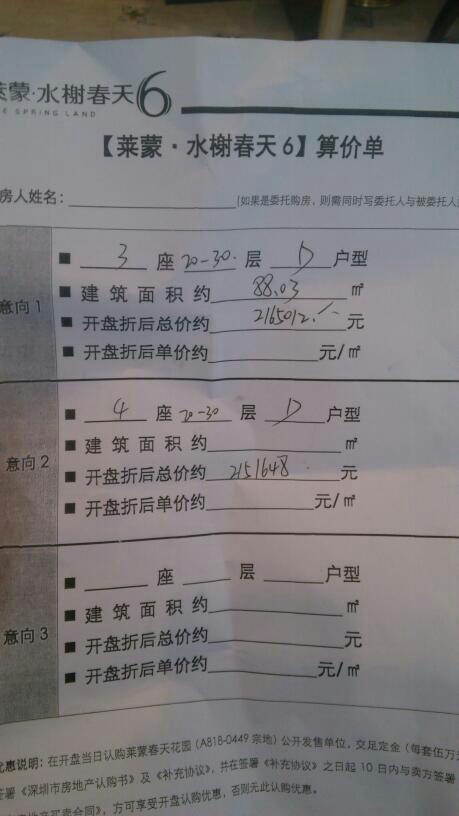 莱蒙·水榭春天6
SPRING LAND
【莱蒙·水榭春天6】算价单
房人姓名： (如果是委托购房，则需同时写委托人与被委托人
意向1
■ 3 座 20-30 层 D 户型
■ 建筑面积约 88.03 ㎡
■ 开盘折后总价约 2165012. 元
■ 开盘折后单价约 元/㎡
意向2
■ 4 座 20-30 层 D 户型
■ 建筑面积约 ㎡
■ 开盘折后总价约 2151648 元
■ 开盘折后单价约 元/㎡
意向3
■ 座 层 户型
■ 建筑面积约 ㎡
■ 开盘折后总价约 元
■ 开盘折后单价约 元/㎡
优惠说明：在开盘当日认购莱蒙春天花园（A818-0449宗地）公开发售单位，交足定金（每套伍万
签署《深圳市房地产认购书》及《补充协议》，并在签署《补充协议》之日起10日内与卖方签署
地产买卖合同》，方可享受开盘认购优惠，否则无此认购优惠。